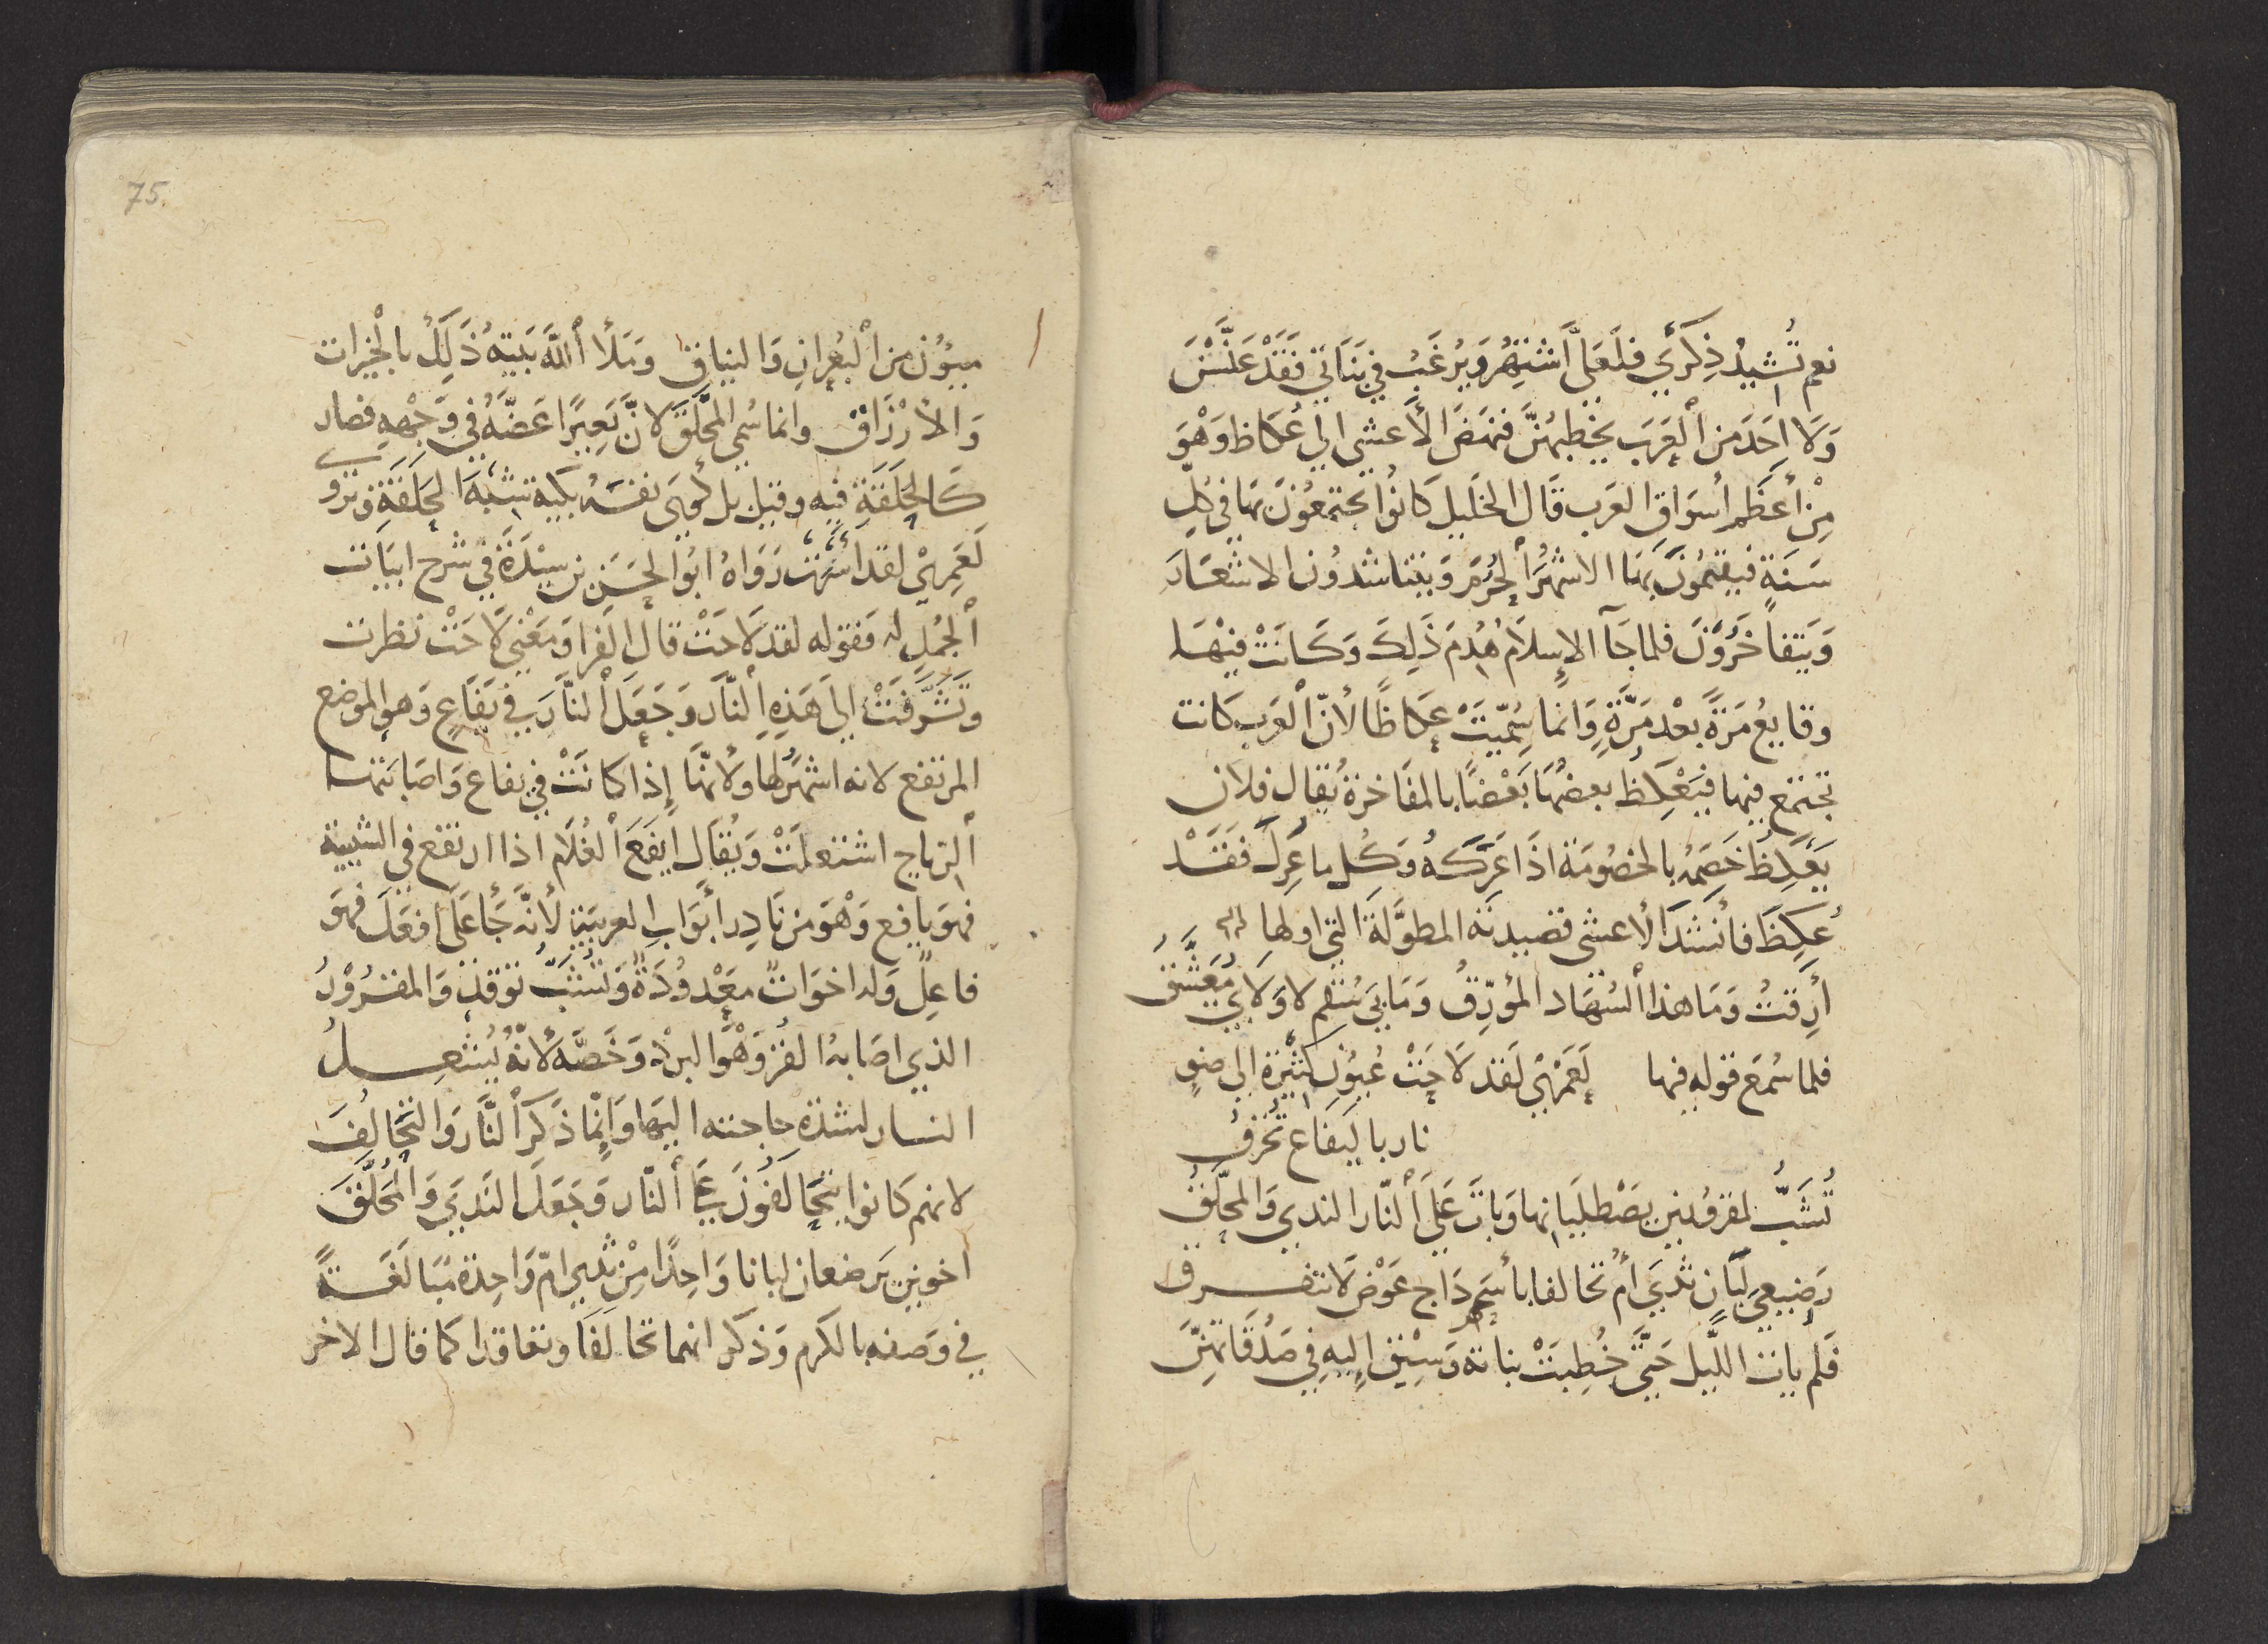 نعم تُشِيدُ ذِكرَيِ فلعَلّي أشتهرُ وَيرْغَبُ في بَنَاتي فَقَدْ عَنَّسْنَ
وَلَا احَدَ من ألعَرَب يخطبهُنَّ فنهَضَ الأعشى الي عُكاظ وَهْوَ
مِنْ أعظَم أسوَاقِ العَرب قَال الخليل كانوُا يجتمعُونَ بهَا في كلّ
سَنَةٍ فيقيمُونَ بهَا الاشهُرَ ألحُرُمَ وَيتناشدُون الاشعَارَ
وَيتفاخَرُونَ فلما جَآ الاِسلَامُ هُدِمَ ذَلِكَ وَكَانَتْ فيْهَا
وقايعُ مَرّةً بعْدَ مَرَّةٍ وَانما سُمّيَتْ عكاظًا لأنّ ألعَرب كانت
تجتمع فيها فيَعْكِظُ بعضُهَا بَعْضًا بالمفَاخرَة يُقال فلان
يَعْكِظُ خَصمَهُ بالخصُومَة اذَا عَرَكَهُ وَكُل ما عُرِكَ فَقَدْ
عُكِظَ فأنشدَ الأعشى قصيدته المطوَّلَة التي اولها
أرِقتُ وَمَا هذا ألسُّهَاد المُؤرّقُ وَمَا بيَ سُقم لا وَلَا بي مَعْشَقُ
فلما سُمعَ قوله فيها لَعَمْرِيْ لَقد لَاحَتْ عُيُون كثيْرة الي ضوءِ
نار باليَفَاعِ تُحْرَقُ
تُشَبُّ لمقرُورَيْنِ يَصْطليَانها وَباتَ عَلَي ألنّار الندي وَالمحلّقُ
رَضيعي لبَان ثديَ أُم تحالفا بأسحم دَاج عَوْضُ لَا نتفرق
فَلم يات اللّيل حَتَّى خُطِبَتْ بناتهُ وَسِيْقَ إليهِ في صَدُقَاتهنّ
75
ميؤُن من ألبُعرانِ وَالنياق وَمَلأ ألله بَيته ذلِكُ بالْخيرات
وَالأرْزَاق وانما سُمي المحلَّق لانَّ بَعِيرًا عَضّهُ في وَجْههِ فصار
كَالحَلقَةِ فيه وقيل بل كوَي نفسَهُ بكية تشبهُ الحَلقَة وَيرْوي
لَعمِريْ لقد أشرَفت رَوَاهُ ابوُ الحِسَن بن سيْدَةَ في شرح ابيَات
ألجُمل له فقوله لقد لَاحَتْ قال الفرا وَمعْني لَاحَتْ نظرت
وَتَشَّرفَتْ إليَ هَذهِ ألنّار وَجَعَلَ ألنّارَ في يَفَاع وَهوَ الموضع
المرتفع لانه اشهَرُ لها ولأنهَا إذا كانَتْ في يفاع وَاصَابَتهَا
ألرّياح اشتعلتْ وَيُقال ايفعَ ألغُلَام اذا ارتفع في الشبيبة
فهوَ يافع وَهْوَ من نادِر أبوَاب العربيَّة لأنّه جَأ عَلَي أفعَلَ فهوَ
فاعِلٌ وَله اخوَاتٌ معْدوُدَةٌ وَتشَبُّ توُقد وَالمقرُوْرُ
الذي اصَابهُ القرُّ وَهْوَ البرْدُ وَخصَّه لأنّهُ يُشعِلُ
النار لشدّةِ حاجته اليهَا وَإنّما ذَكرَ ألنَّار وَالتّحالُف
لانهم كَانوا يتحَالفُونَ عَلَي ألنّار وَجَعَلَ النَديَ وَالمُحَلَّقَ
اخوَين يَرضعَان لبانا وَاحِدًا مِنْ ثدي امّ وَاحِدة مُبَالغَةً
في وَصفه بالكرم وَذكر انهما تحَالفَا وتعاقدا كما قال الاخر